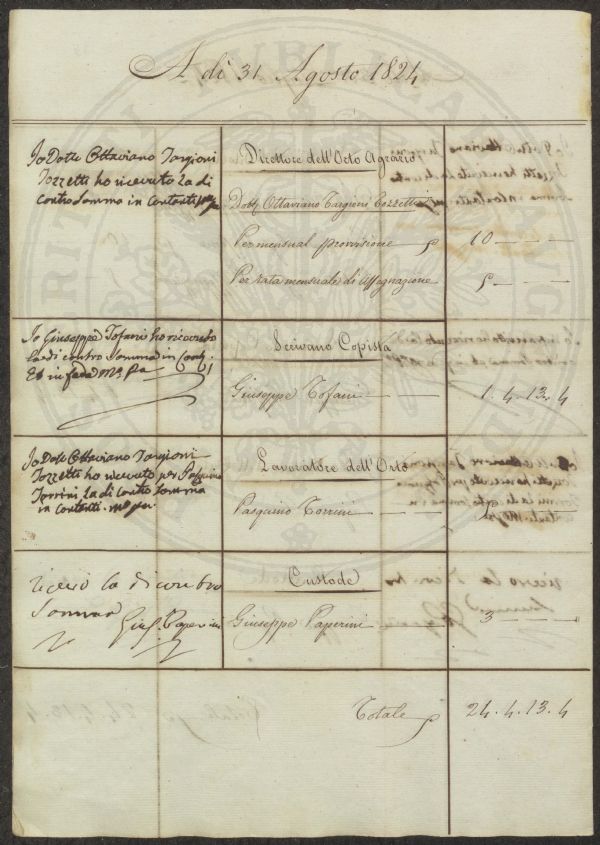 A dì 31 Agosto 1824
Io Dotte Ottaviano Targioni
Tozzetti ho ricevuto la di
contro Somma in Contanti
Direttore dell'Orto Agrario
Dott Ottaviano Targioni Tozzetti
Per mensual provisione 10 — —
Per rata mensuale di Assegnazione 5 — —
Io Giuseppe Tofani ho ricevuto
la di contro Somma in
Ed in fede Mo Pa
Scrivano Copista
Giuseppe Tofani 1. 4. 13. 4
Io Dotte Ottaviano Targioni
Tozzetti ho ricevuto per Pasquino
Torrini la di contro Somma
in Contanti
Lavoratore dell'Orto
Pasquino Torrini — — 5 — —
ricevo la di contro
Somma
Gius. Paperini
Custode
Giuseppe Paperini 3 — —
Totale 24. 4. 13. 4